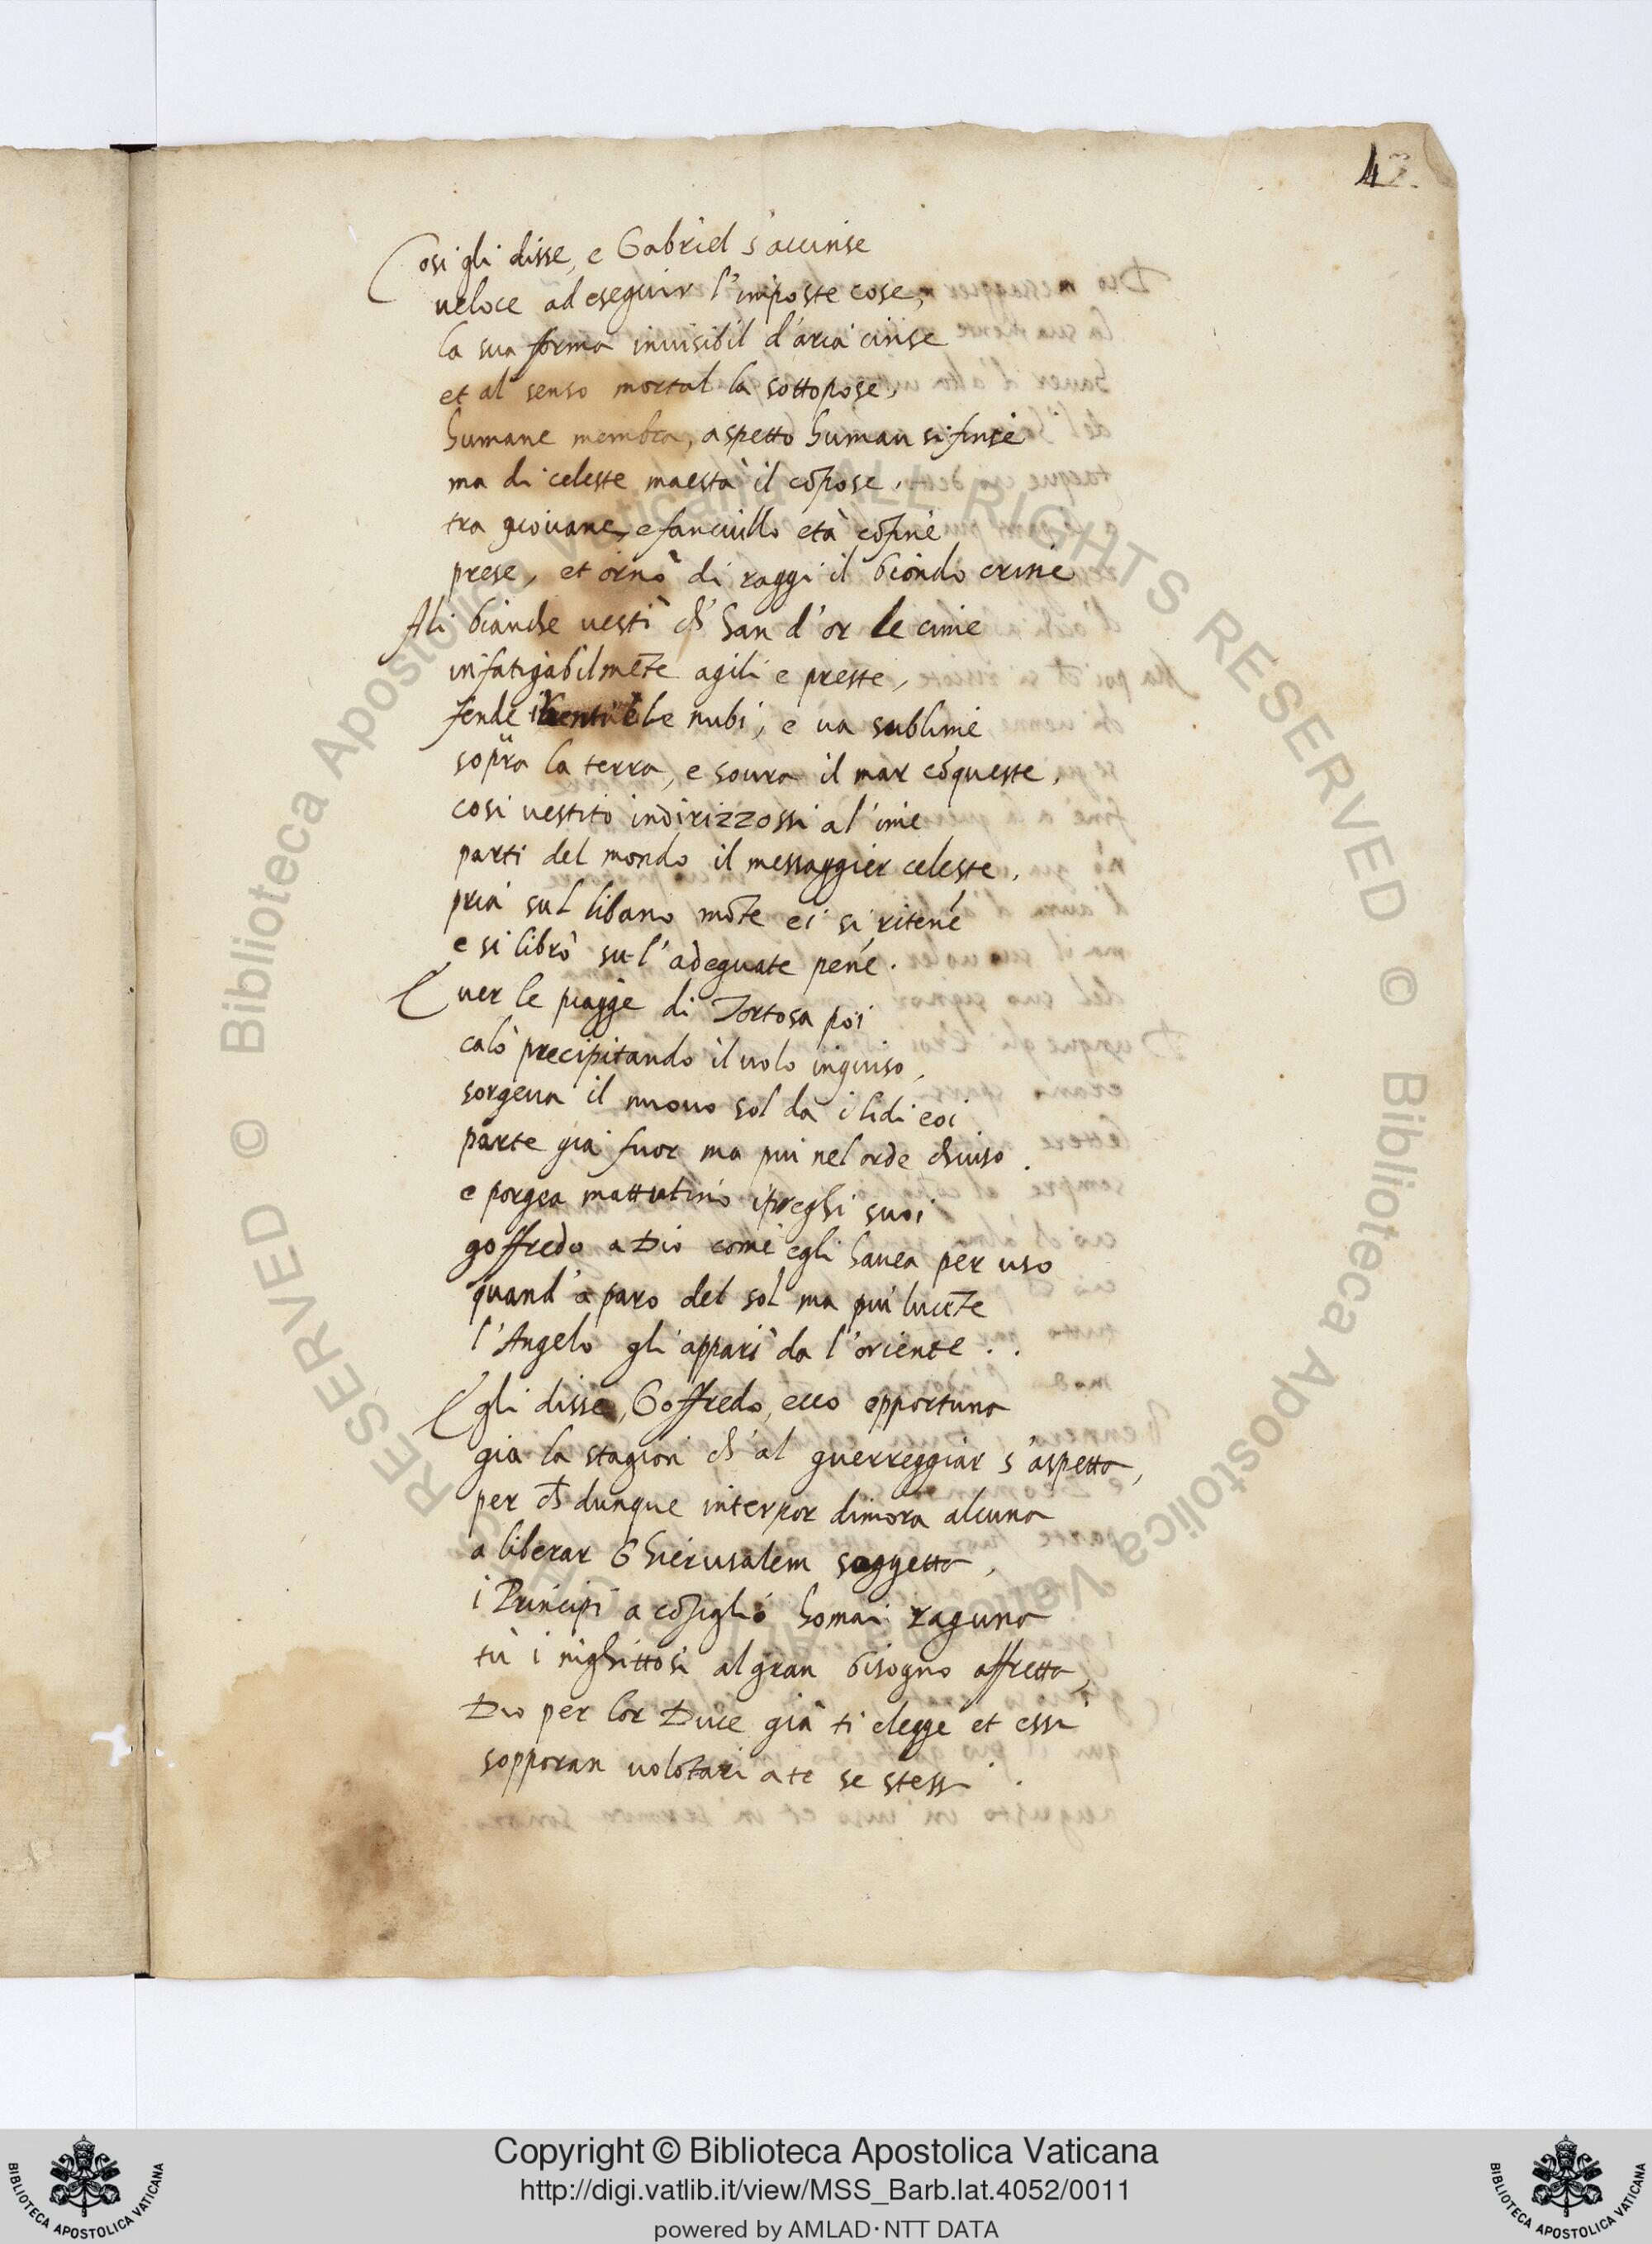 4
Cosi gli disse, e Gabriel s'accinse
ueloce ad eseguir l'imposte cose,
la sua forma inuisibil d'aria cinse
et al senso mortal la sottopose,
humane membra, aspetto human si finse
ma di celeste maestà il cōpose.
tra giouane, e fanciullo età cōfine
prese, et ornò di raggi il biondo crine
Ali bianche uestì ch' han d'or le cime
infatigabilmēte agili e preste,
fende i uenti e le nubi, e ua sublime
sopra la terra, e soura il mar cō queste,
cosi uestito indirizzossi a l'ime
parti del mondo il messaggier celeste,
pria sul libano mōte ei si ritēne
e si librò su l'adeguate pēne.
E uer le piagge di Tortosa poi
calò precipitando il uolo ingiuso,
sorgeua il nuouo sol da i lidi eoi
parte già fuor ma piu nel ōde chiuso.
e porgea mattutino i preghi suoi
goffredo a Dio come egli hauea per uso
quand' a paro del sol ma piu lucēte
l'Angelo gli apparì da l'oriente..
Egli disse, Goffredo, ecco opportuna
gia la stagion ch' al guerreggiar s'aspetta,
per ch dunque interpor dimora alcuna
a liberar Ghierusalem soggetta,
i Principi a cōsiglio homai raguna
tù i nighittosi al gran bisogno affretta,
Dio per lor Duce già ti elegge et essi
sopporan uolōtari a te se stessi.
© Biblioteca Apostolica Vaticana ALL RIGHTS RESERVED © Biblioteca Apostolica Vaticana ALL RIGHTS RESERVED
BIBLIOTECA APOSTOLICA VATICANA
Copyright © Biblioteca Apostolica Vaticana
http://digi.vatlib.it/view/MSS_Barb.lat.4052/0011
powered by AMLAD·NTT DATA
BIBLIOTECA APOSTOLICA VATICANA